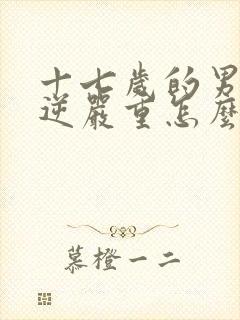 十七歲的男
逆嚴重怎麼
慕橙一二